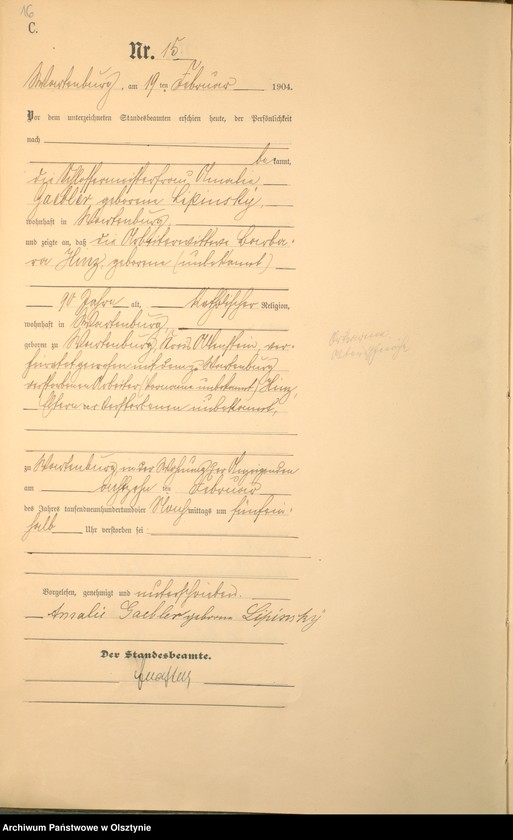 16
C.
Nr. 15
Wartenburg, am 19 ten Februar 1904.
Vor dem unterzeichneten Standesbeamten erschien heute, der Persönlichkeit
nach
bekannt,
die Schlossermeisterfrau Amalie
Gaebler geborene Lipinsky,
wohnhaft in Wartenburg,
und zeigte an, daß die Arbeiterwittwe Barba-
ra Hinz, geborene (unbekannt)
90 Jahre alt, katholischer Religion,
wohnhaft in Wartenburg,
geboren zu Wartenburg, Kreis Allenstein, ver-
heirathet gewesen mit dem zu Wartenburg
verstorbenen Arbeiter (Vorname unbekannt) Hinz,
Eltern der Verstorbenen unbekannt,
zu Wartenburg in der Wohnung der Anzeigenden
am achtzehn ten Februar
des Jahres tausendneunhundertundvier Nachmittags um fünfein-
halb Uhr verstorben sei:
Vorgelesen, genehmigt und unterschrieben.
Amalie Gaebler geborene Lipinsky
Der Standesbeamte.
Archiwum Państwowe w Olsztynie